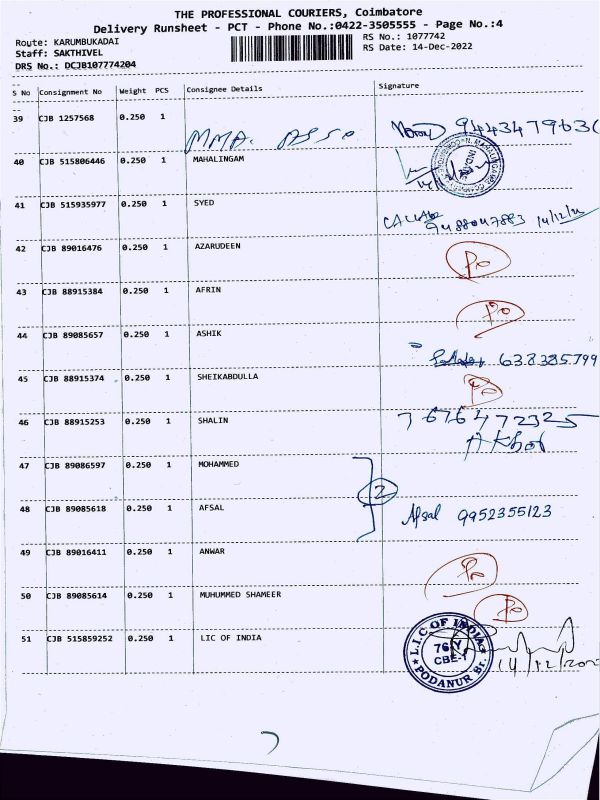 THE PROFESSIONAL COURIERS, Coimbatore
Delivery Runsheet - PCT - Phone No.:0422-3505555 - Page No.:4
Route: KARUMBUKADAI
RS No.: 1077742
Staff: SAKTHIVEL
RS Date: 14-Dec-2022
DRS No.: DCJB107774204
S No Consignment No Weight PCS Consignee Details Signature
39 CJB 1257568 0.250 1 MMA. 9443479630
40 CJB 515806446 0.250 1 MAHALINGAM
41 CJB 515935977 0.250 1 SYED
9488047883 14/12/22
42 CJB 89016476 0.250 1 AZARUDEEN
43 CJB 88915384 0.250 1 AFRIN
44 CJB 89085657 0.250 1 ASHIK
638385799
45 CJB 88915374 0.250 1 SHEIKABDULLA
46 CJB 88915253 0.250 1 SHALIN 7676472325
47 CJB 89086597 0.250 1 MOHAMMED
2
48 CJB 89085618 0.250 1 AFSAL Afsal 9952355123
49 CJB 89016411 0.250 1 ANWAR
50 CJB 89085614 0.250 1 MUHUMMED SHAMEER
51 CJB 515859252 0.250 1 LIC OF INDIA
L.I.C OF INDIA
CBE-1
PODANUR Br.